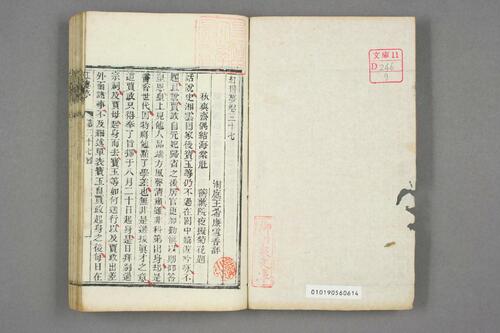 文庫11
D 266
9
紅樓夢卷三十七
洞庭王希廉雪香評
秋爽齋偶結海棠社
蘅蕪院夜擬菊花題
話說史湘雲回家後寶玉等仍不過在園中嬉遊吟咏不
題且說賈政自元妃歸省之後居官更加勤慎以期仰答
皇恩皇上見他人品端方風聲清肅雖非科第出身却是
書香世代因特將他點了學差也無非是選拔真才之意
這賈政只得奉了旨擇于八月二十日起身是日拜別過
宗祠及賈母起身而去寶玉等如何送行以及賈政出差
外面諸事不及細述單表寶玉自賈政起身之後每日在
紅樓夢
第三十七回
010190560614